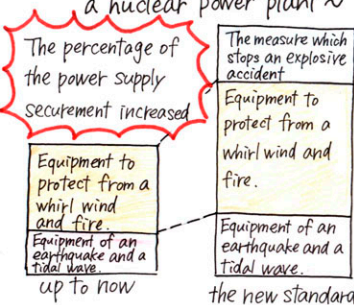 a nuclear power plant ~
The percentage of
the power supply
securement increased
The measure which
stops an explosive
accident
Equipment to
protect from a
whirl wind and
fire.
Equipment of an
earthquake and a
tidal wave.
the new standard
Equipment to
protect from a
whirl wind
and fire.
Equipment of an
earthquake and a
tidal wave.
up to now